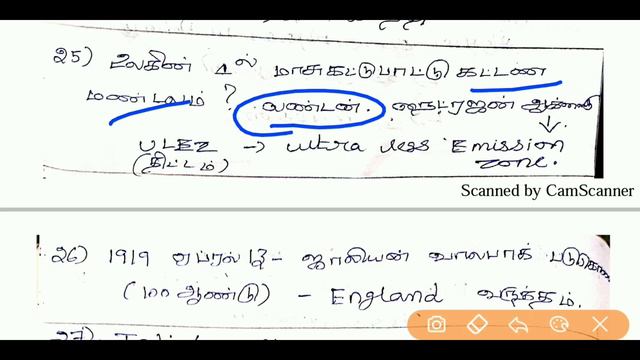 25) உலகின் 1ல் மாசுகட்டுபாட்டு கட்டண
மண்டலம்? லண்டன். நைட்ரஜன் ஆக்ஸை
ULEZ → ultra less Emission
(திட்டம்) zone.
Scanned by CamScanner
26) 1919 ஏப்ரல் 13 - ஜாலியன் வாலபாக் படுகொலை
(100 ஆண்டு) - England வருத்தம்.